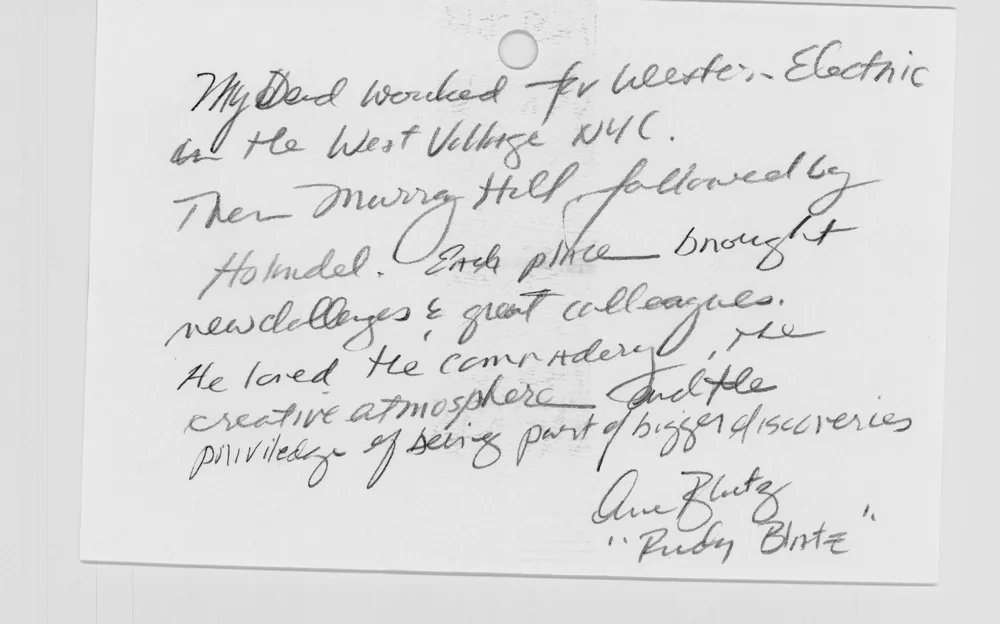 My Dad worked for Western Electric
in the West Village NYC.
Then Murray Hill, followed by
Holmdel. Each place brought
new challenges & great colleagues.
He loved the camaradery, the
creative atmosphere and the
priviledge of being part of bigger discoveries
Blatz
"Rudy Blatz"